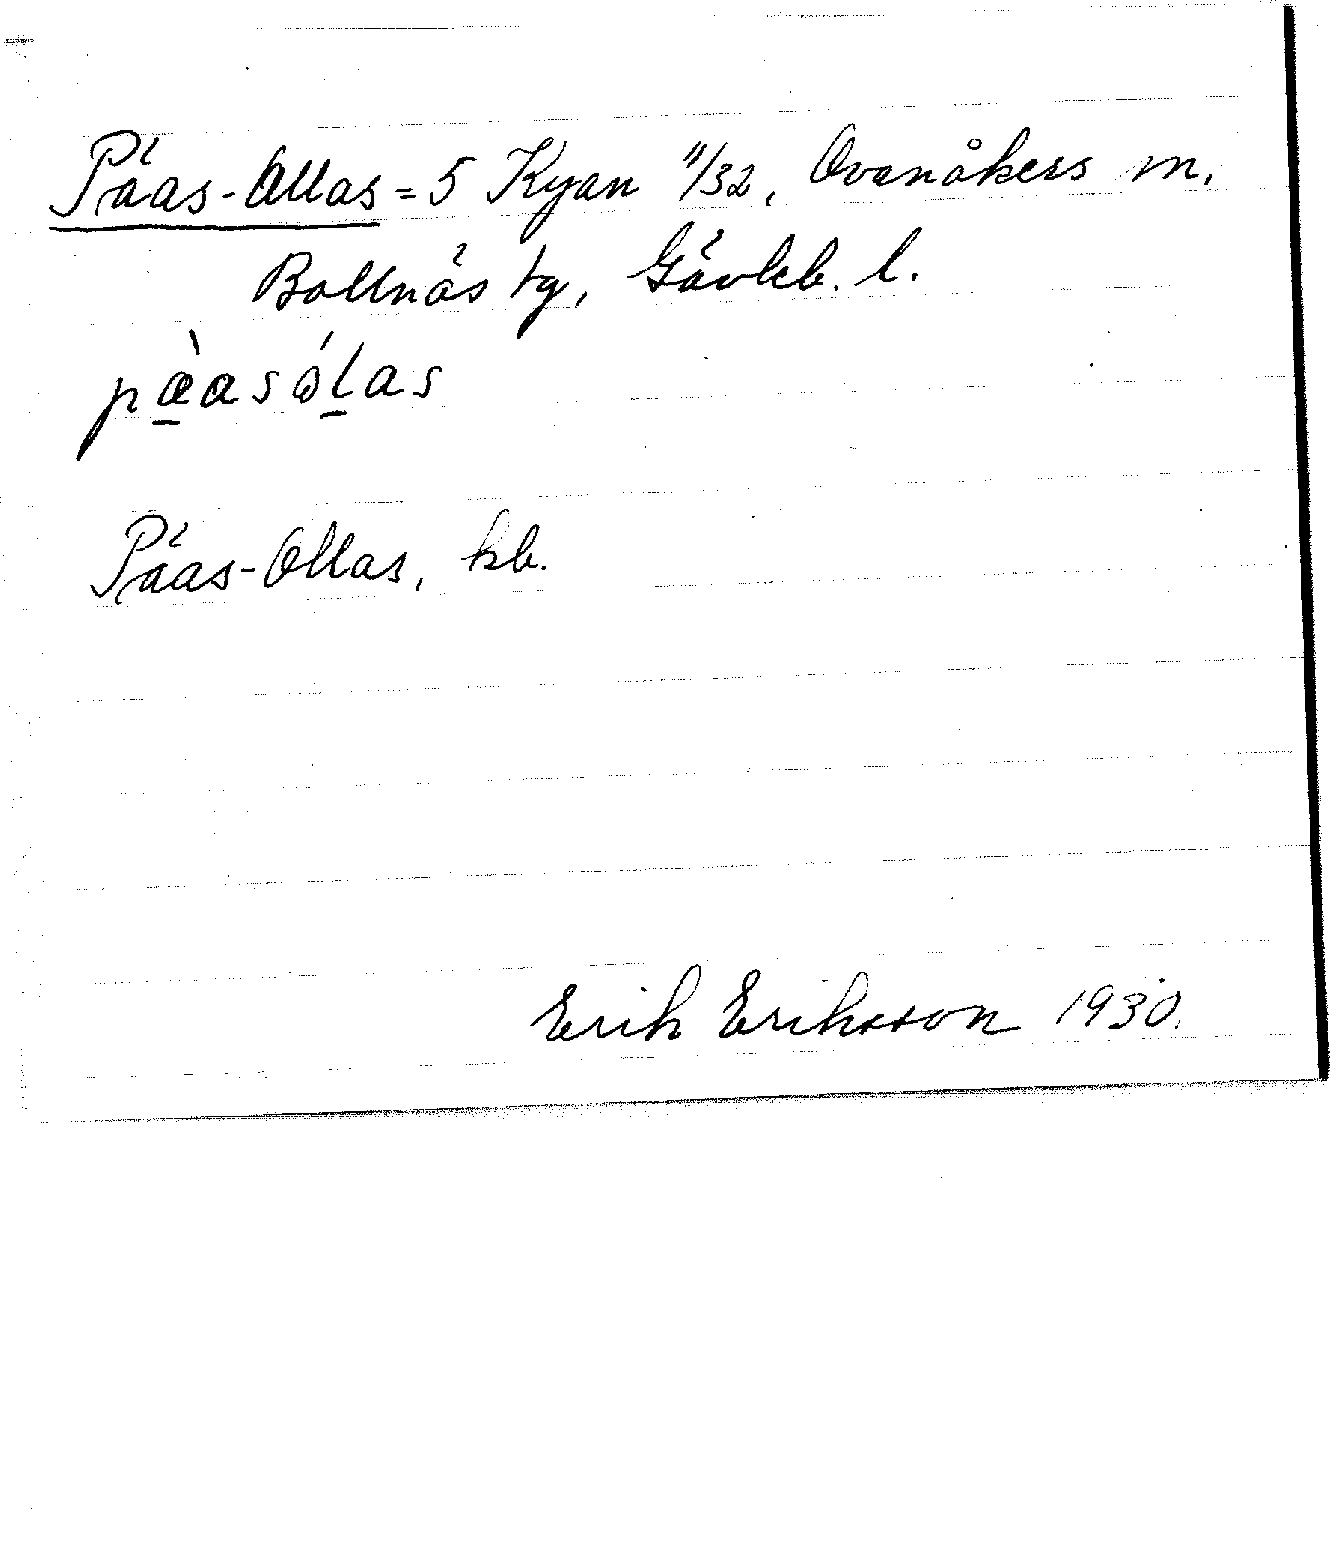 Päas-Ollas = 5 Kyan 11/32, Ovanåkers sn,
Bollnäs tg, Gävleb. l.
pæ̀asólas
Päas-Ollas, kb.
Erik Eriksson 1930.